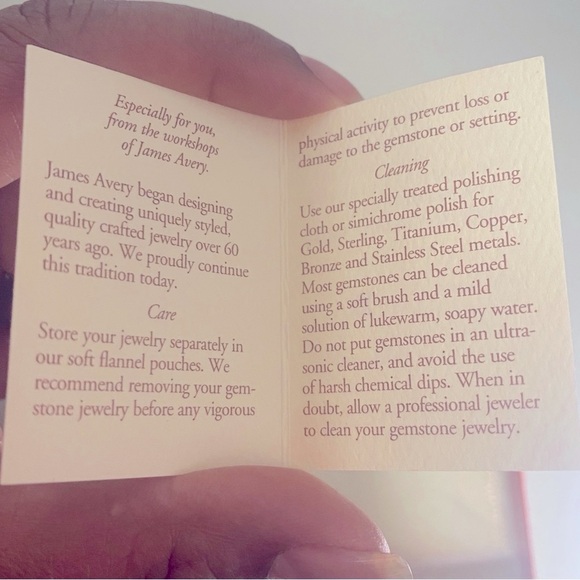 Especially for you,
from the workshops
of James Avery.
James Avery began designing
and creating uniquely styled,
quality crafted jewelry over 60
years ago. We proudly continue
this tradition today.
Care
Store your jewelry separately in
our soft flannel pouches. We
recommend removing your gem-
stone jewelry before any vigorous
physical activity to prevent loss or
damage to the gemstone or setting.
Cleaning
Use our specially treated polishing
cloth or simichrome polish for
Gold, Sterling, Titanium, Copper,
Bronze and Stainless Steel metals.
Most gemstones can be cleaned
using a soft brush and a mild
solution of lukewarm, soapy water.
Do not put gemstones in an ultra-
sonic cleaner, and avoid the use
of harsh chemical dips. When in
doubt, allow a professional jeweler
to clean your gemstone jewelry.